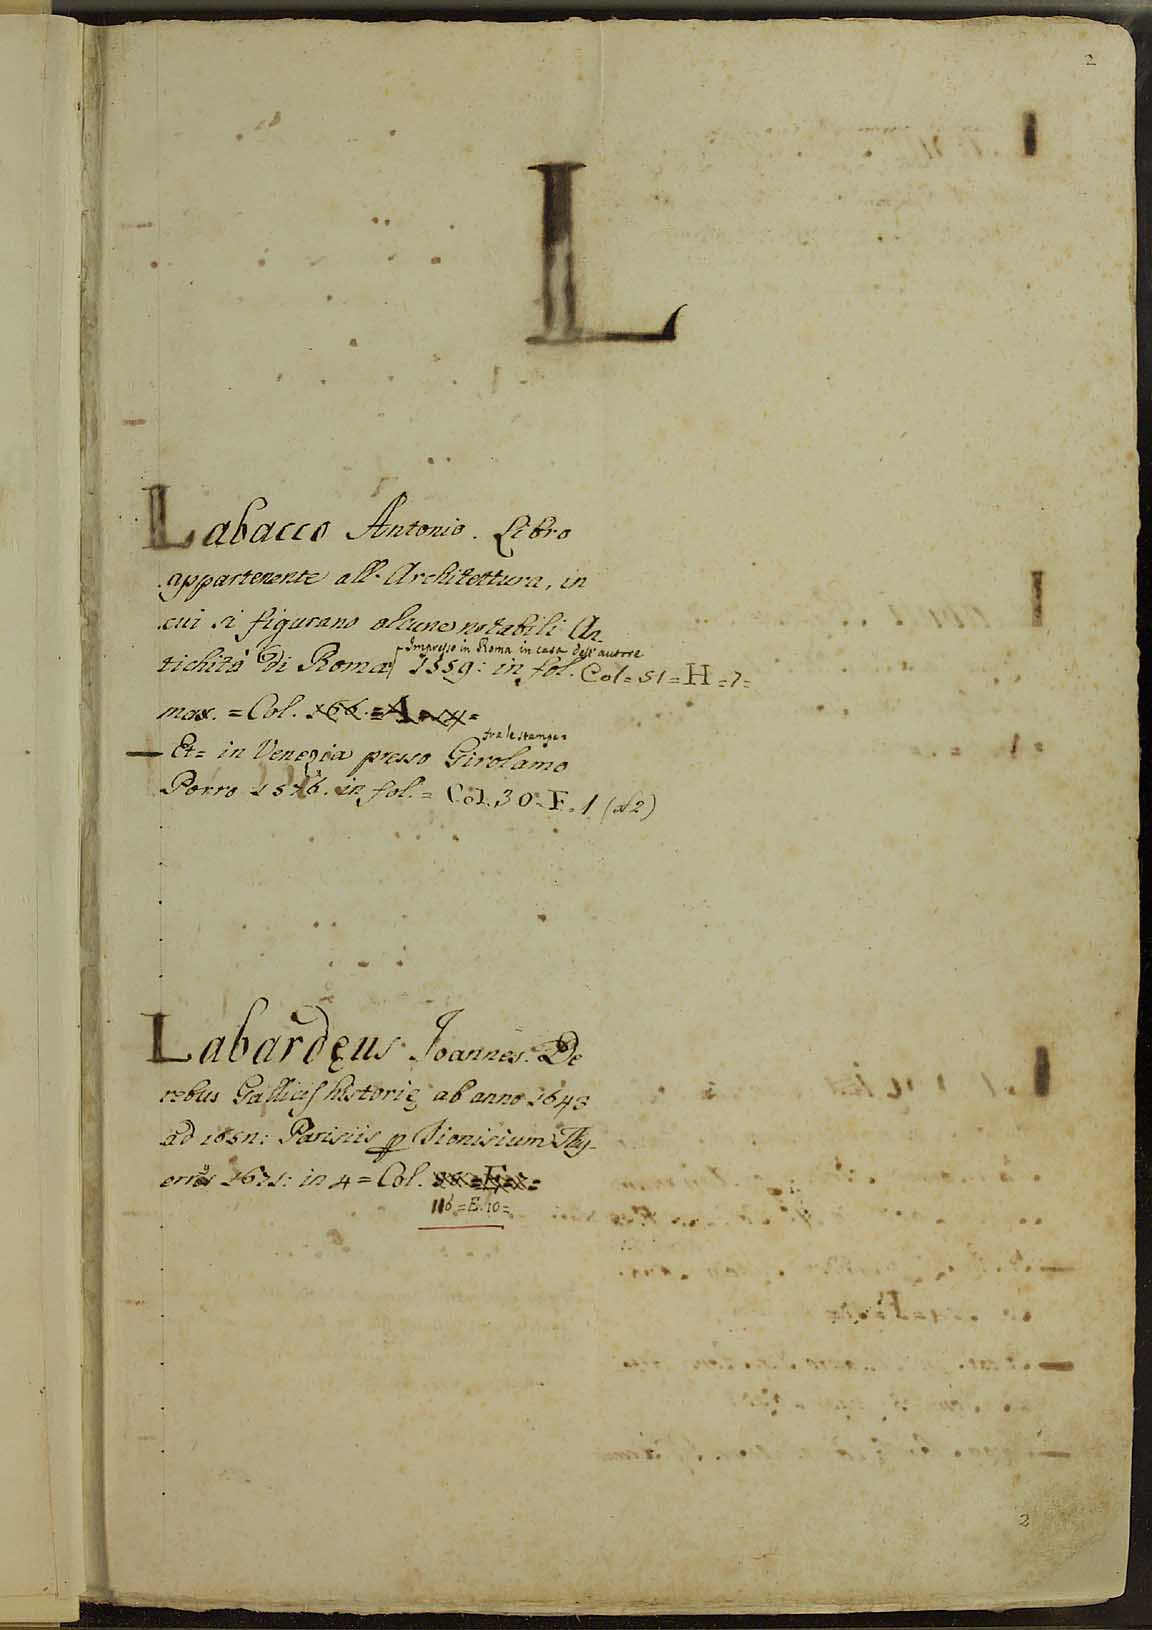 2
L
Labacco Antonio. Libro
appartenente all' Architettura, in
cui si figurano alcune notabili An-
Impresso in Roma in casa dell'autore
tichità di Roma 1559: in fol. Col= 51= H =7=
max. = Col. 166. = A =
fra le stampe=
— Et= in Venezia presso Girolamo
Porro 1576. in fol. = Col. 30. F. 1 (al 2)
Labardęus Joannes. De
rebus Gallicis historię ab anno 1643
ad 1652: Parisiis p Dionisium Thy-
erri 1671: in 4 = Col.
116.=E.10=
2